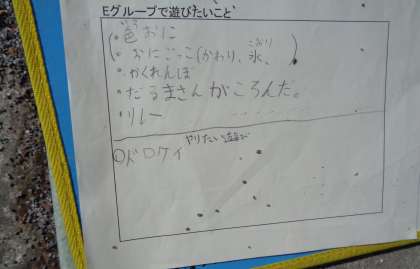 Eグループで遊びたいこと
いろ
・色おに
こおり
・おにごっこ(かわり、氷、)
・かくれんぼ
・だるまさんがころんだ。
・リレー
やりたい遊び
○ドロケイ